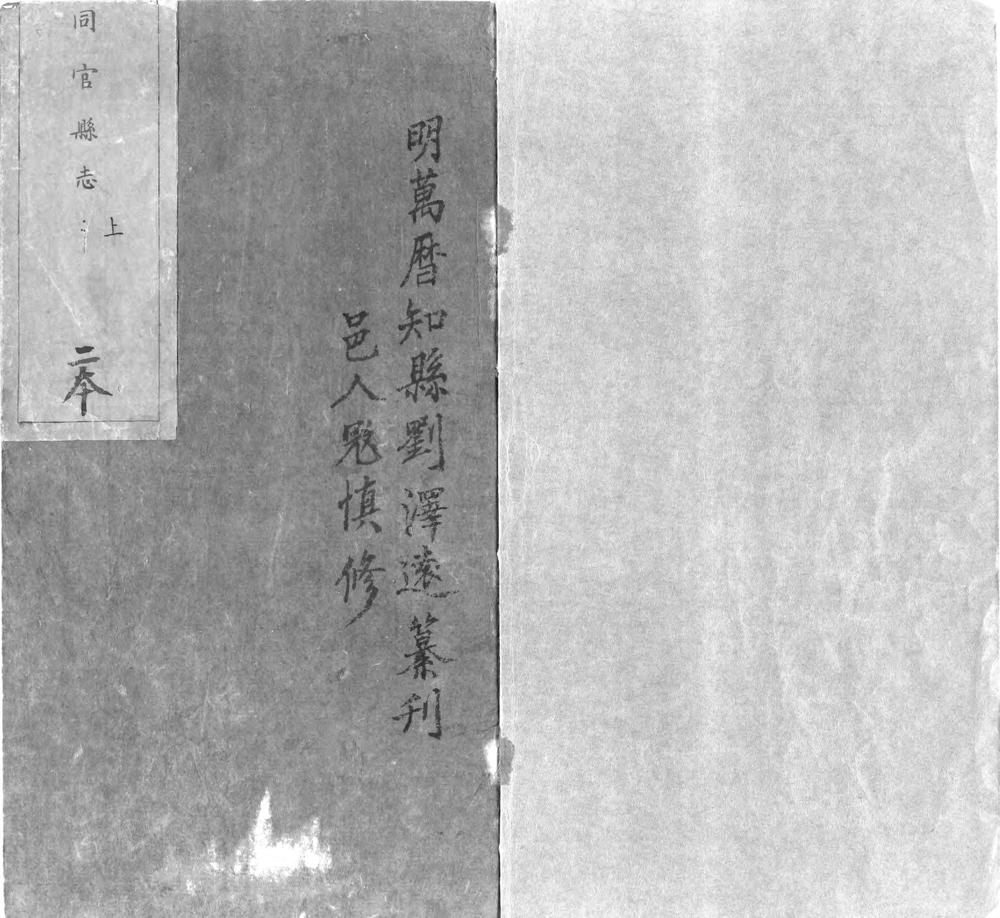 明萬曆知縣劉澤遠纂刊
邑人寇慎修
同官縣志
上
二本